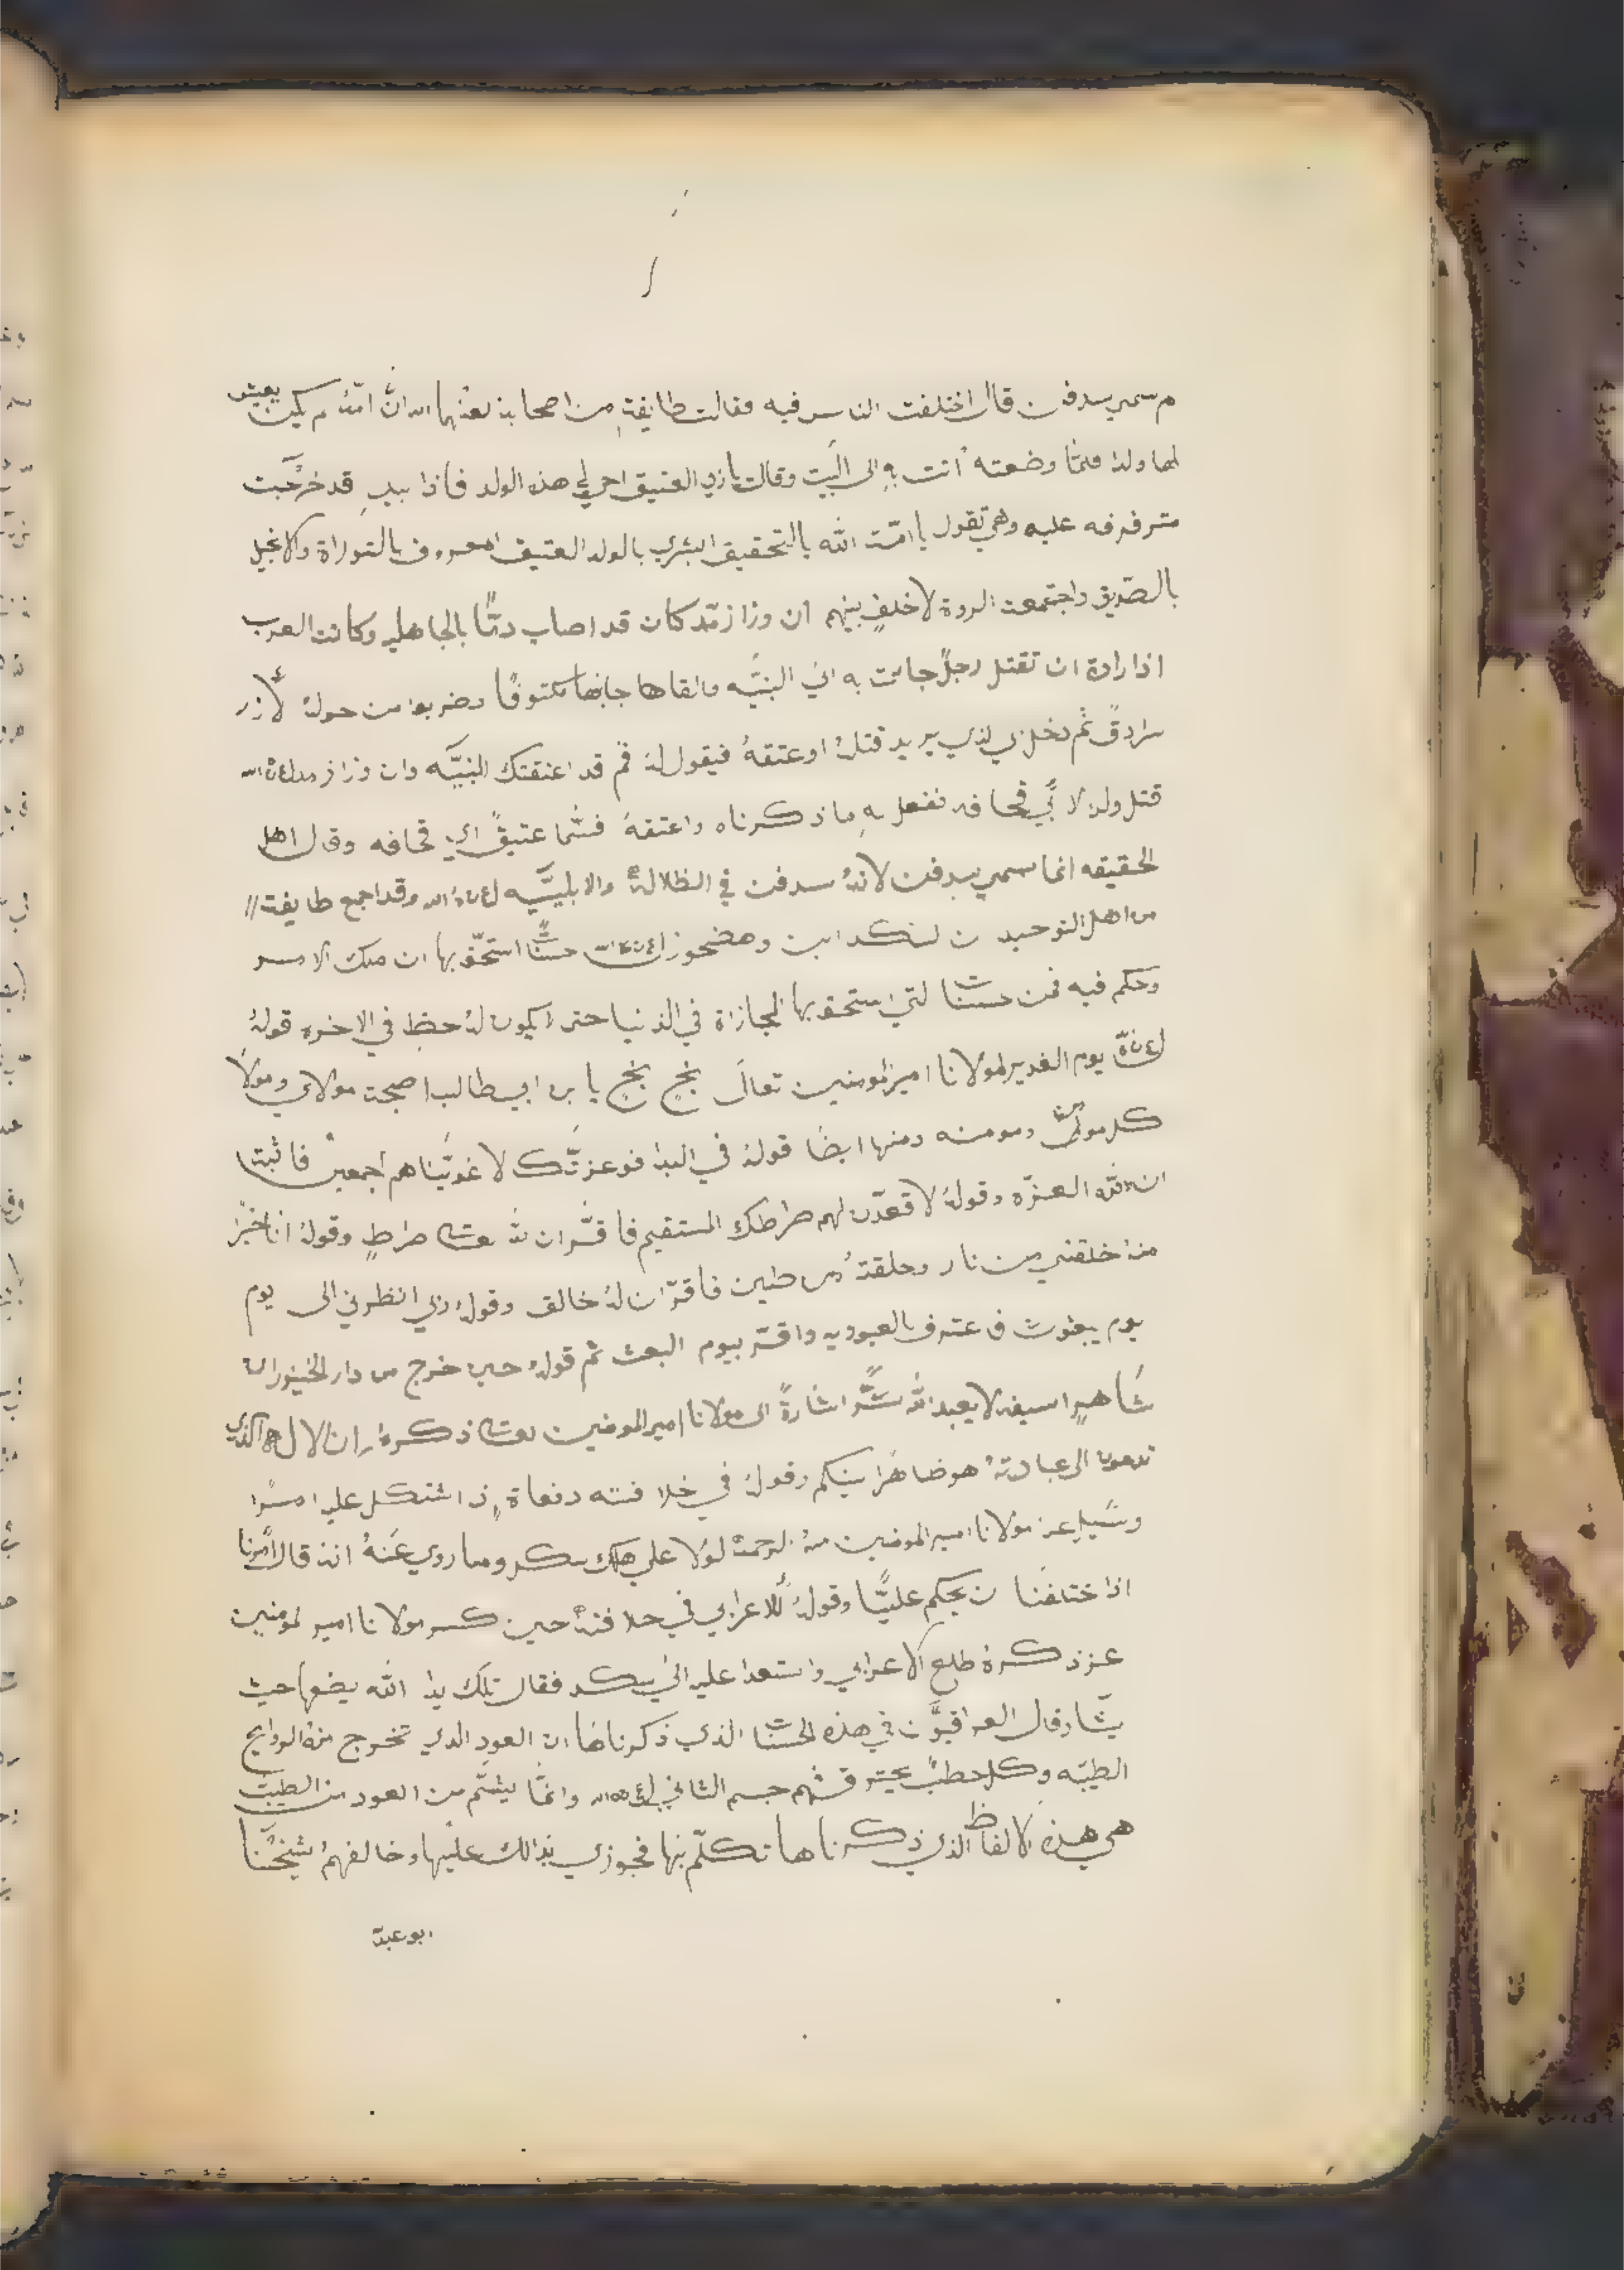 سمي سدفن قال اختلفت الناس فيه فقالت طايفة من اصحابه لعنهما الله ان امه لم يكن يعيش
لها ولد فلمّا وضعته اتت به الى البَيت وقالت يا ذي العتيق احي لي هذه الولد فاذا بيدٍ قد خرَجت
مترفرفه عليه وهي تقول يا امّت الله بالتحقيق ابشري بالولد العتيق المعروف بالتوراة والانجيل
بالصّديق واجتمعت الروة لا خلفٍ بينهم ان كان قد اصاب دمًّا بالجاهليه وكانت العرب
اذا رادة ان تقتل رجلً جائت به الى البنيَّه والقاها جانبها مكتوفًا وضربوا من حوله
سرادقً ثم دخل الذي يريد قتله او عتقهُ فيقول له قم قد اعتقتك البنيَّه وان
قتل ولد لابي قحافه ففعل به ما ذكرناه واعتقهُ فسُمّا عتيقً ابي قحافه وقال اهل
الحقيقه انما سمي سدفن لانهُ سدفن في الظلالة والابليسيَّه وقد اجمع طايفة
من اهل التوحيد استحقّ بها ان ملك الامر
وحكم فيه فمن حسنا لتي استحق بها المجازاة في الدنيا حتى لا يكون لهُ حظٍ في الاخره قولهُ
يوم الغدير لمولانا امير المومنين تعالَى بخٍ بخٍ يا بن ابي طالب اصبحت مولاي ومولا
كل مومن ومومنه ومنها ايضًا قولهُ في البدا فوعزتَّك لاغويَّناهم اجمعين فاثبت
ان لله العزّه وقولهُ لاقعدّن لهم صراطك المستقيم فاقّر ان لله صراطٍ وقولهُ انا خيرً
منهُ خلقتني من نار وخلقتهُ من طين فاقرّ ان لهُ خالق وقولهُ ربي انظرني الى يوم
يوم يبعثون فعترف بالعبوديه واقرّ بيوم البعث ثم قولهُ حين خرج من دار الخيزران
شاهرٍ اسيفه لا يعبد الله سرًّا اشارةً الى مولانا امير المومنين ذكرهُ ان الاله الذي
تدعون الى عبادتهُ هو ضاهرًا بينكم وقولهُ في خلافته دفعاة اذا اشكل عليه امرًا
وسُيل عن مولانا امير المومنين منهُ الرحمة لولا علي هلك وما روي عَنهُ انهُ قال امُرنا
اذا ختلفنا ن يحكم عليًّا وقولهُ للاعرابي في خلافتهُ حين كسر مولانا امير المومنين
عز ذكرهُ ضلع الاعرابي واستعدا عليه الى فقال تلك يدا الله يضعها حيث
يشا وقال العراقيوَّن في هذه الحسنا الذي ذكرناها ان العود الذي تخرج منهُ الروايح
الطيبّه وكل حطبً يحترق فهم جسم الثاني وانمَّا يشتّم من العود من الطيبَت
هي هذه الالفاظ الذي ذكرناها تكلّم بها فجوزي بذالك عليها وخالفهم شيخنَّا
ابو عبد